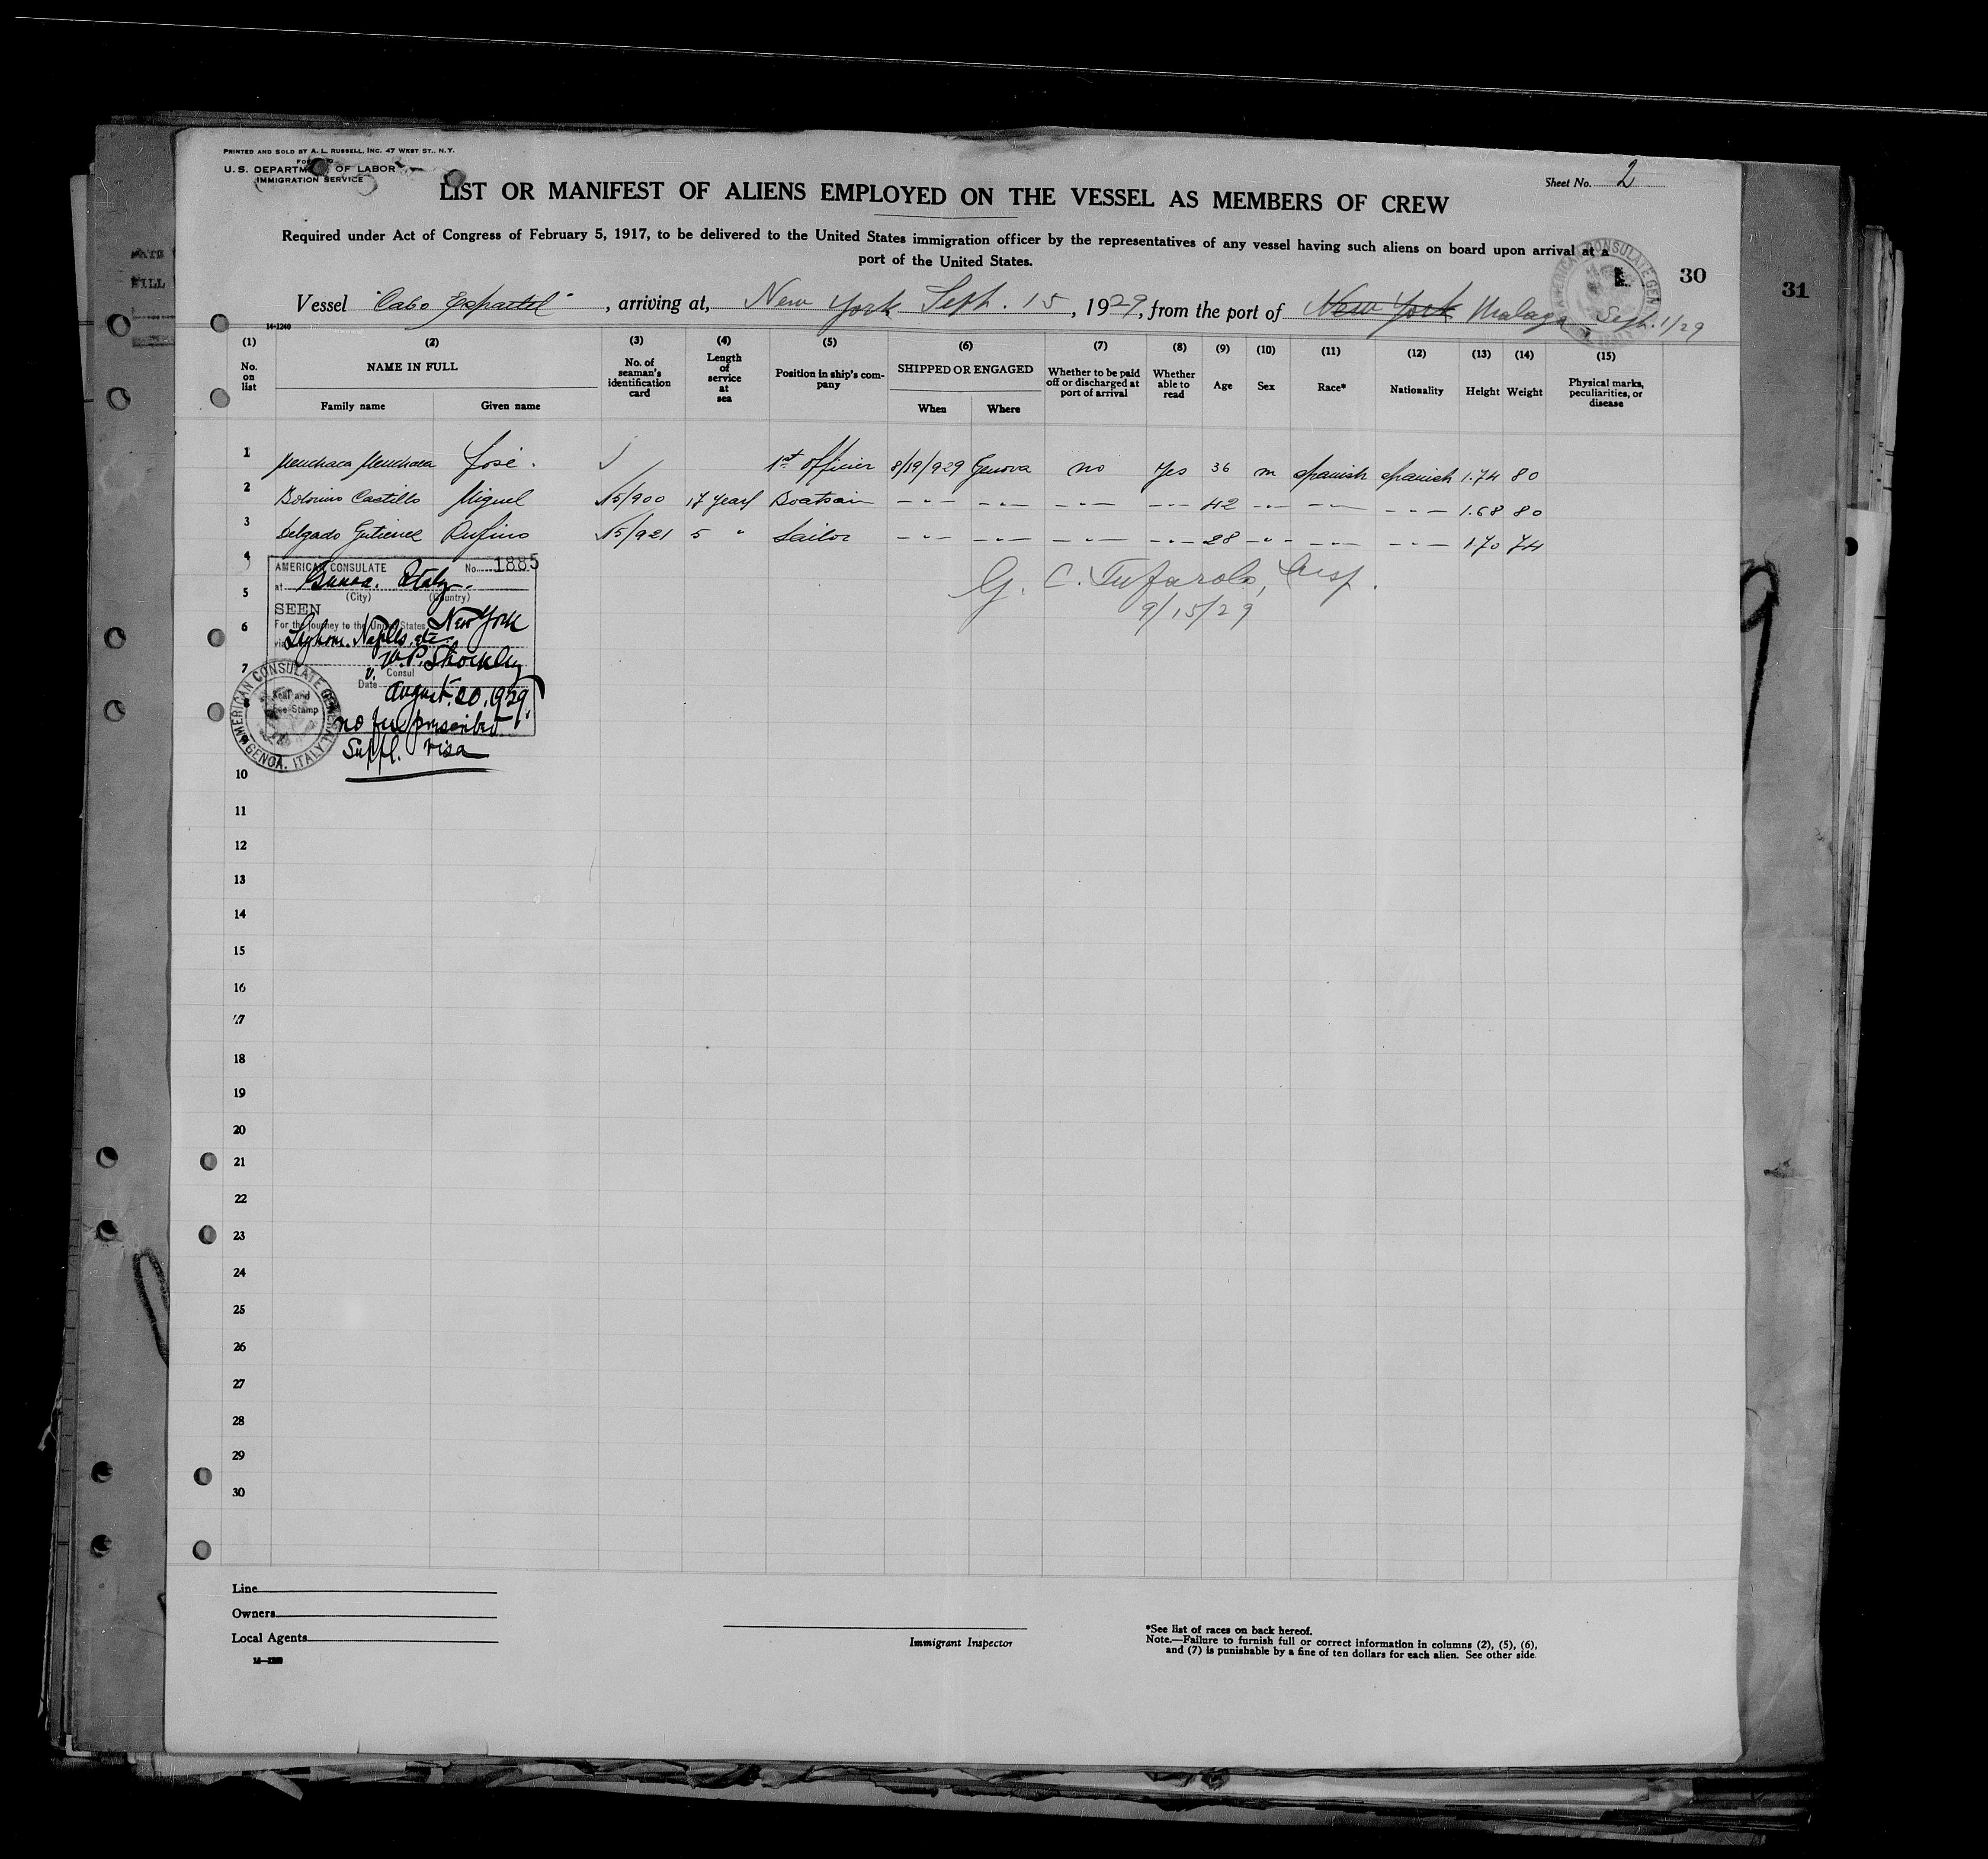 PRINTED AND SOLD BY A. L. RUSSELL, INC. 47 WEST ST., N.Y.
U. S. DEPARTMENT OF LABOR
IMMIGRATION SERVICE
Sheet No. 2
LIST OR MANIFEST OF ALIENS EMPLOYED ON THE VESSEL AS MEMBERS OF CREW
Required under Act of Congress of February 5, 1917, to be delivered to the United States immigration officer by the representatives of any vessel having such aliens on board upon arrival at a
port of the United States.
30
31
Vessel "Cabo Espartel", arriving at, New York Sept. 15, 1929, from the port of New York Malaga Sept. 1/29
14-1240
(1) (2) (3) (4) (5) (6) (7) (8) (9) (10) (11) (12) (13) (14) (15)
No. on list
NAME IN FULL
Family name Given name
No. of seaman's identification card
Length of service at sea
Position in ship's company
SHIPPED OR ENGAGED
When Where
Whether to be paid off or discharged at port of arrival
Whether able to read
Age
Sex
Race*
Nationality
Height
Weight
Physical marks, peculiarities, or disease
1 Menchaca Menchaca José. 1st officier 8/19/929 Genova no Yes 36 m Spanish Spanish 1.74 80
2 Castillo Miguel 15/900 17 years Boatsain -"- -"- -"- -"- 42 -"- -"- -"- 1.68 80
3 Delgado Rufino 15/921 5 " Sailor -"- -"- -"- -"- 28 -"- -"- -"- 1.70 74
4
AMERICAN CONSULATE No. 1885
at Genoa. Italy.
(City) (Country)
5
SEEN
For the journey to the United States New York
6
via Leghorn. Naples, etc
W.P. Shockley
7
V. Consul
Date August 20, 1929
Seal and
8
Fee Stamp
no fee prescribed
Suppl. visa
AMERICAN CONSULATE GENERAL GENOA, ITALY
G. C. Tufarolo, Insp.
9/15/29
10
11
12
13
14
15
16
17
18
19
20
21
22
23
24
25
26
27
28
29
30
Line
Owners
Local Agents
Immigrant Inspector
*See list of races on back hereof.
Note.—Failure to furnish full or correct information in columns (2), (5), (6),
and (7) is punishable by a fine of ten dollars for each alien. See other side.